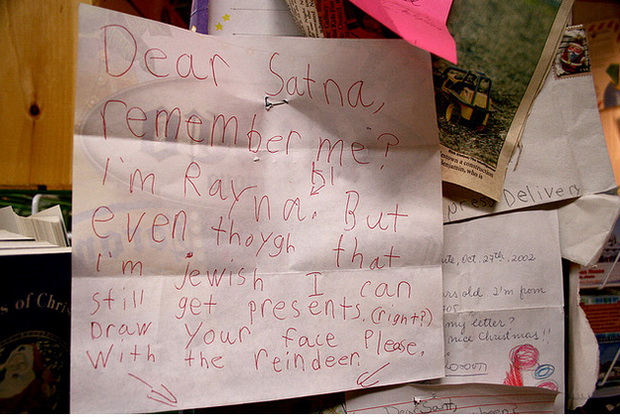 Dear Satna,
remember me?
I'm Rayna. But
even thoygh that
I'm Jewish I can
still get presents. (right?)
Draw your face Please.
With the reindeer.
s of Chris
press Delivery
Oct. 27th, 2002
old I'm from
my letter?
nice Christmas!!
Dear Santa,